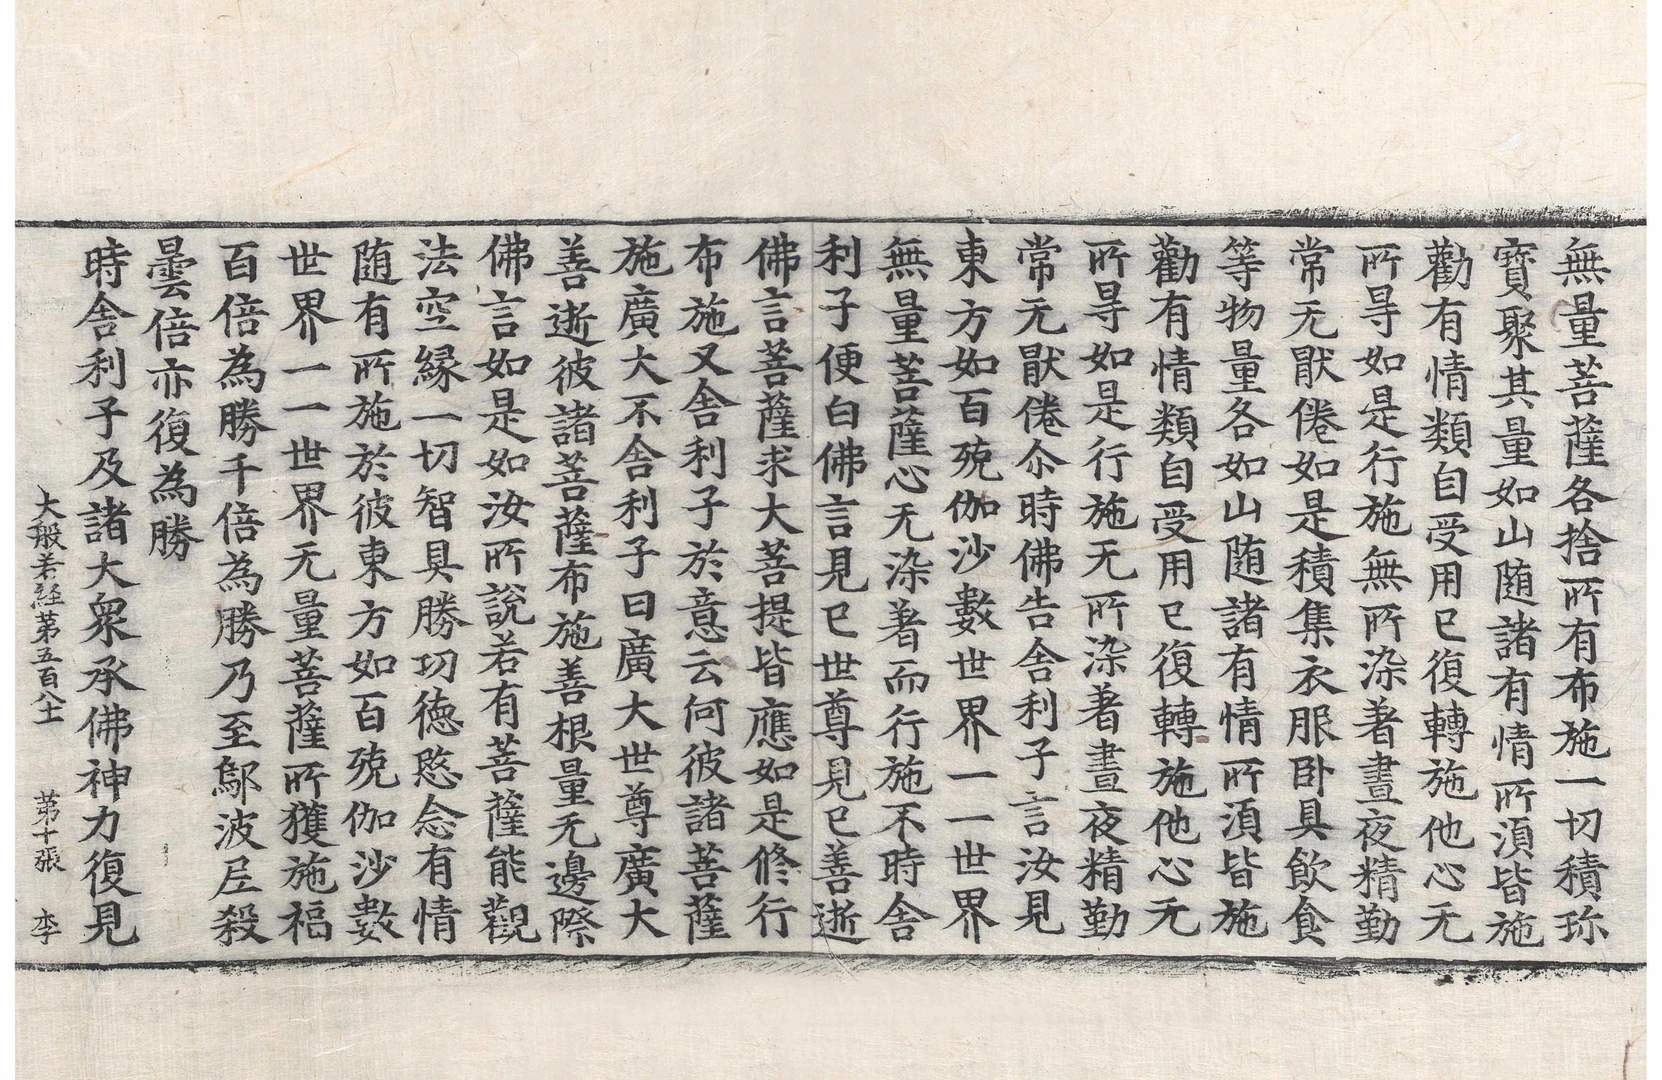 無量菩薩各捨所有布施一切積珎
寳聚其量如山随諸有情所湏皆施
勸有情類自受用已復轉施他心无
所㝵如是行施無所染著晝夜精勤
常无猒倦如是積集衣服卧具飲食
等物量各如山随諸有情所湏皆施
勸有情類自受用已復轉施他心无
所㝵如是行施无所染著晝夜精勤
常无猒倦尒時佛告舍利子言汝見
東方如百殑伽沙數世界一一世界
無量菩薩心无染著而行施不時舍
利子便白佛言見已世尊見已善逝
佛言菩薩求大菩提皆應如是修行
布施又舍利子於意云何彼諸菩薩
施廣大不舍利子曰廣大世尊廣大
善逝彼諸菩薩布施善根量无邊際
佛言如是如汝所說若有菩薩能觀
法空縁一切智具勝功徳愍念有情
随有所施於彼東方如百殑伽沙數
世界一一世界无量菩薩所獲施福
百倍為勝千倍為勝乃至鄔波尼殺
曇倍亦復為勝
時舍利子及諸大衆承佛神力復見
大般若経第五百八十 第十張 李